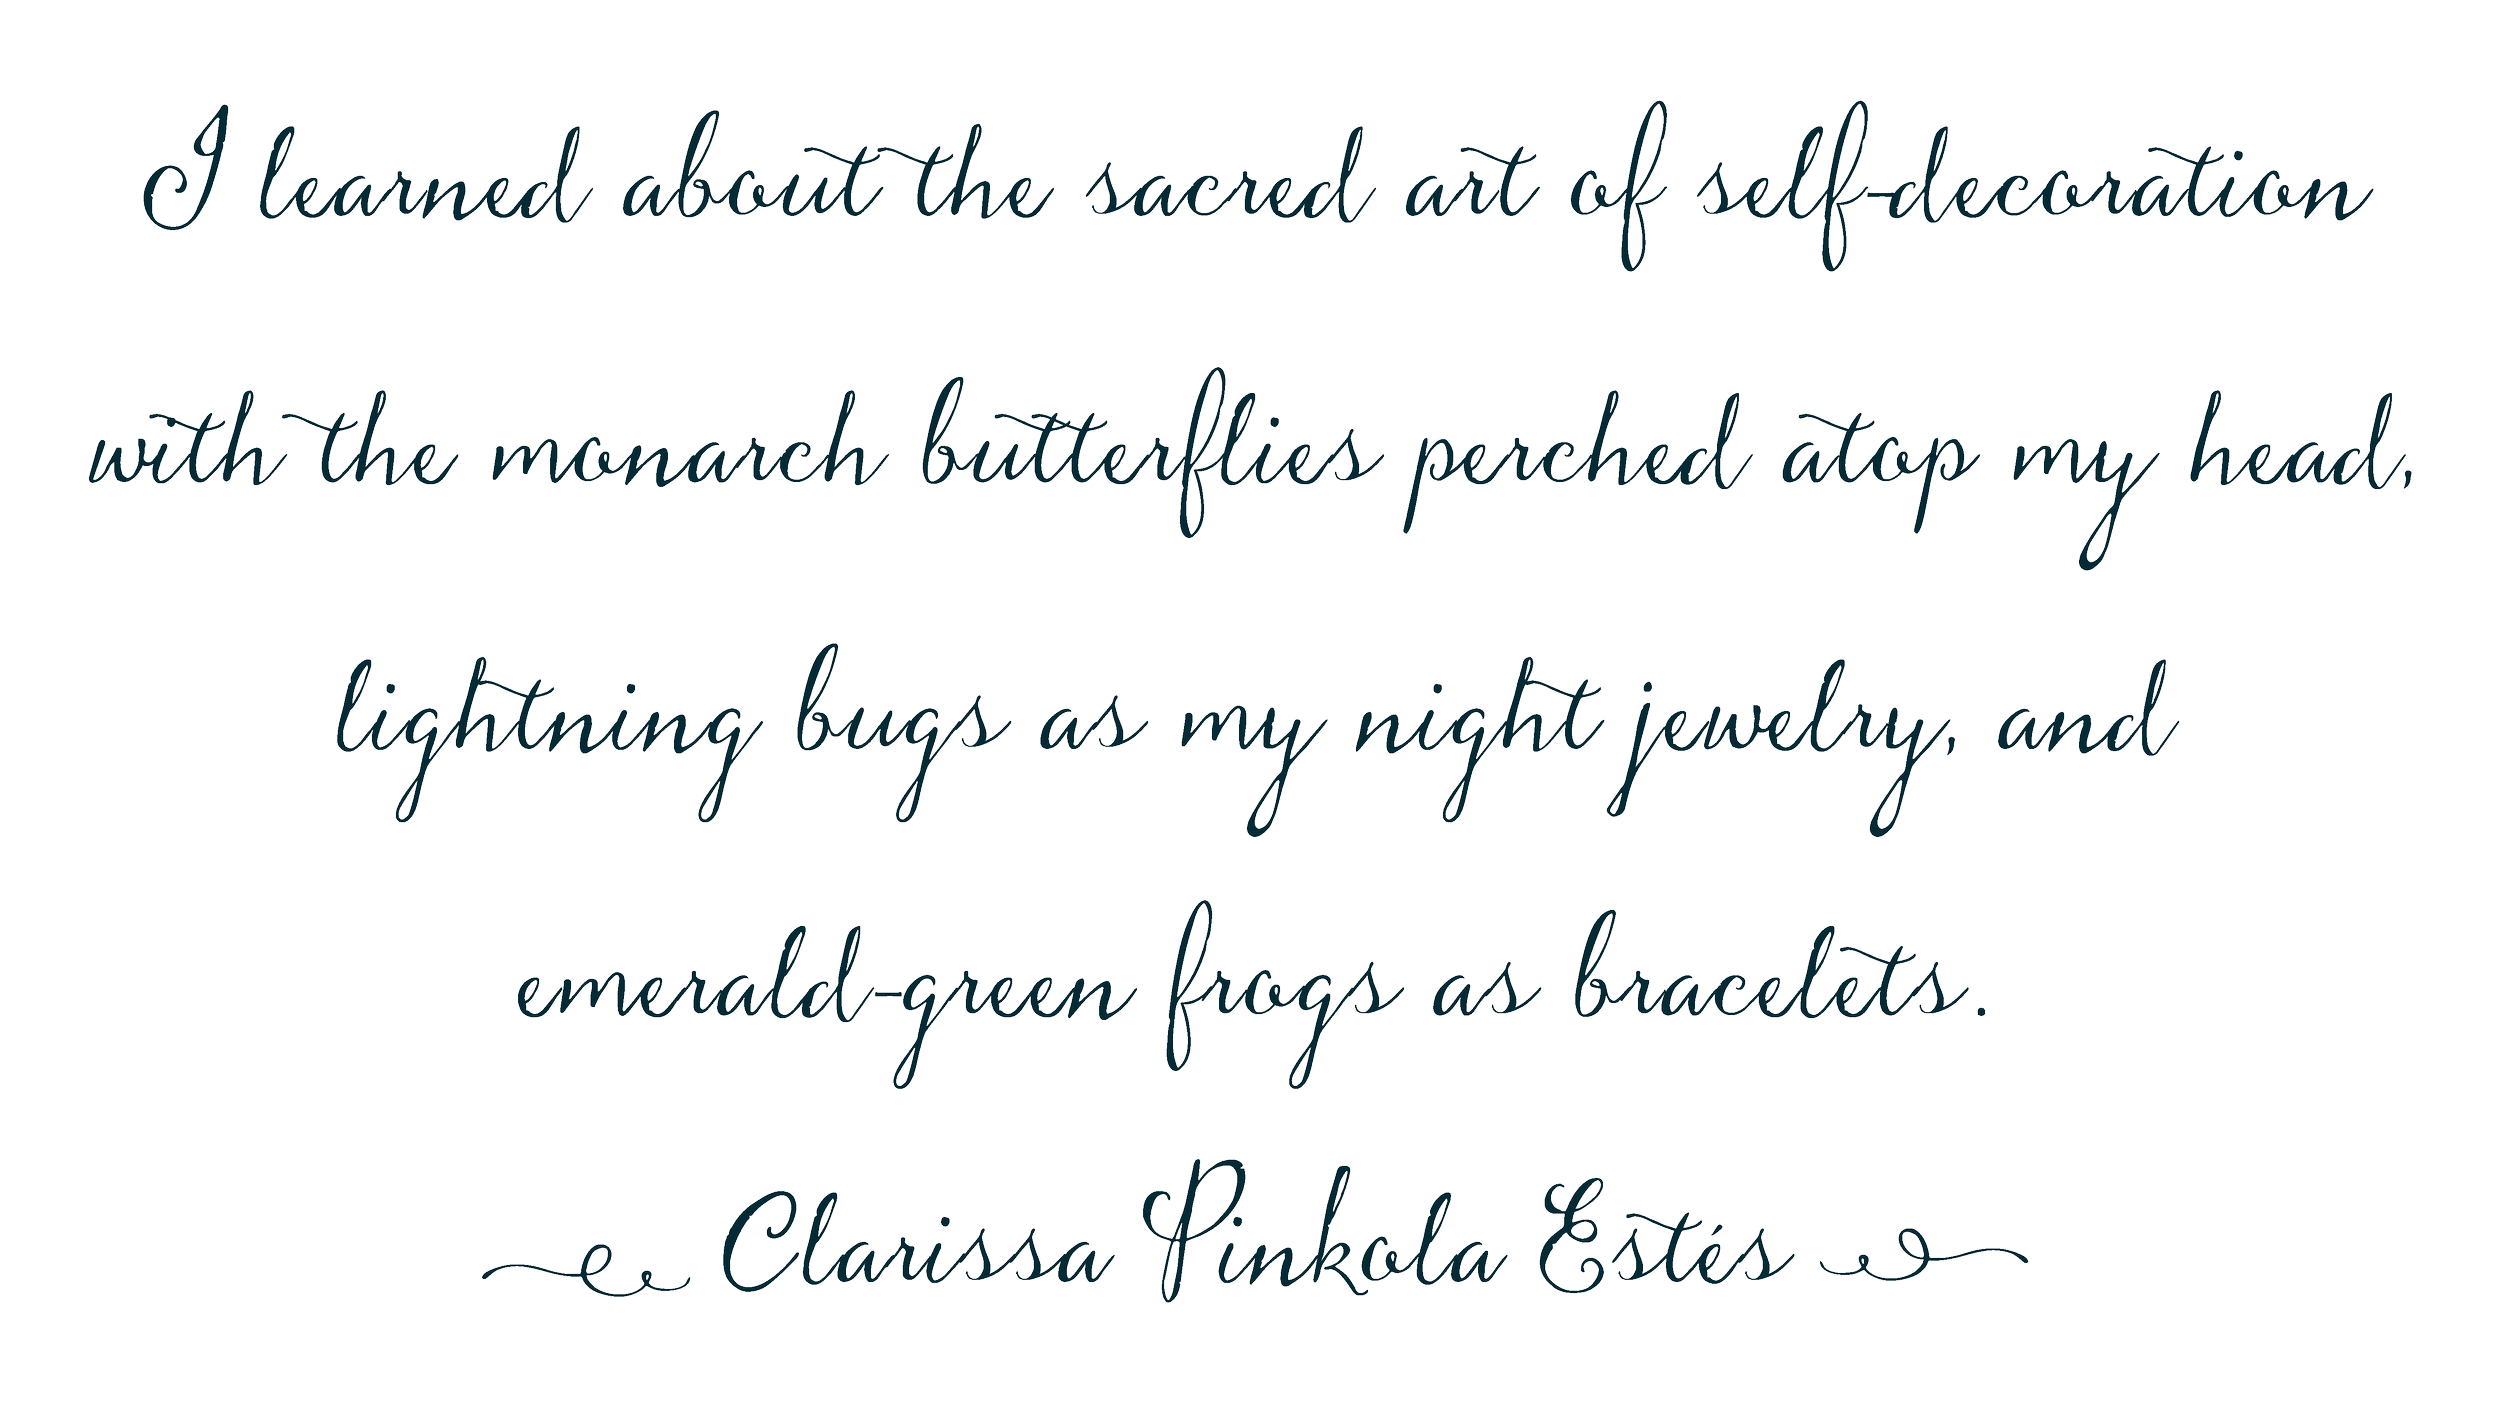 I learned about the sacred art of self-decoration
with the monarch butterflies perched atop my head,
lightning bugs as my night jewelry, and
emerald-green frogs as bracelets.
Clarissa Pinkola Estés